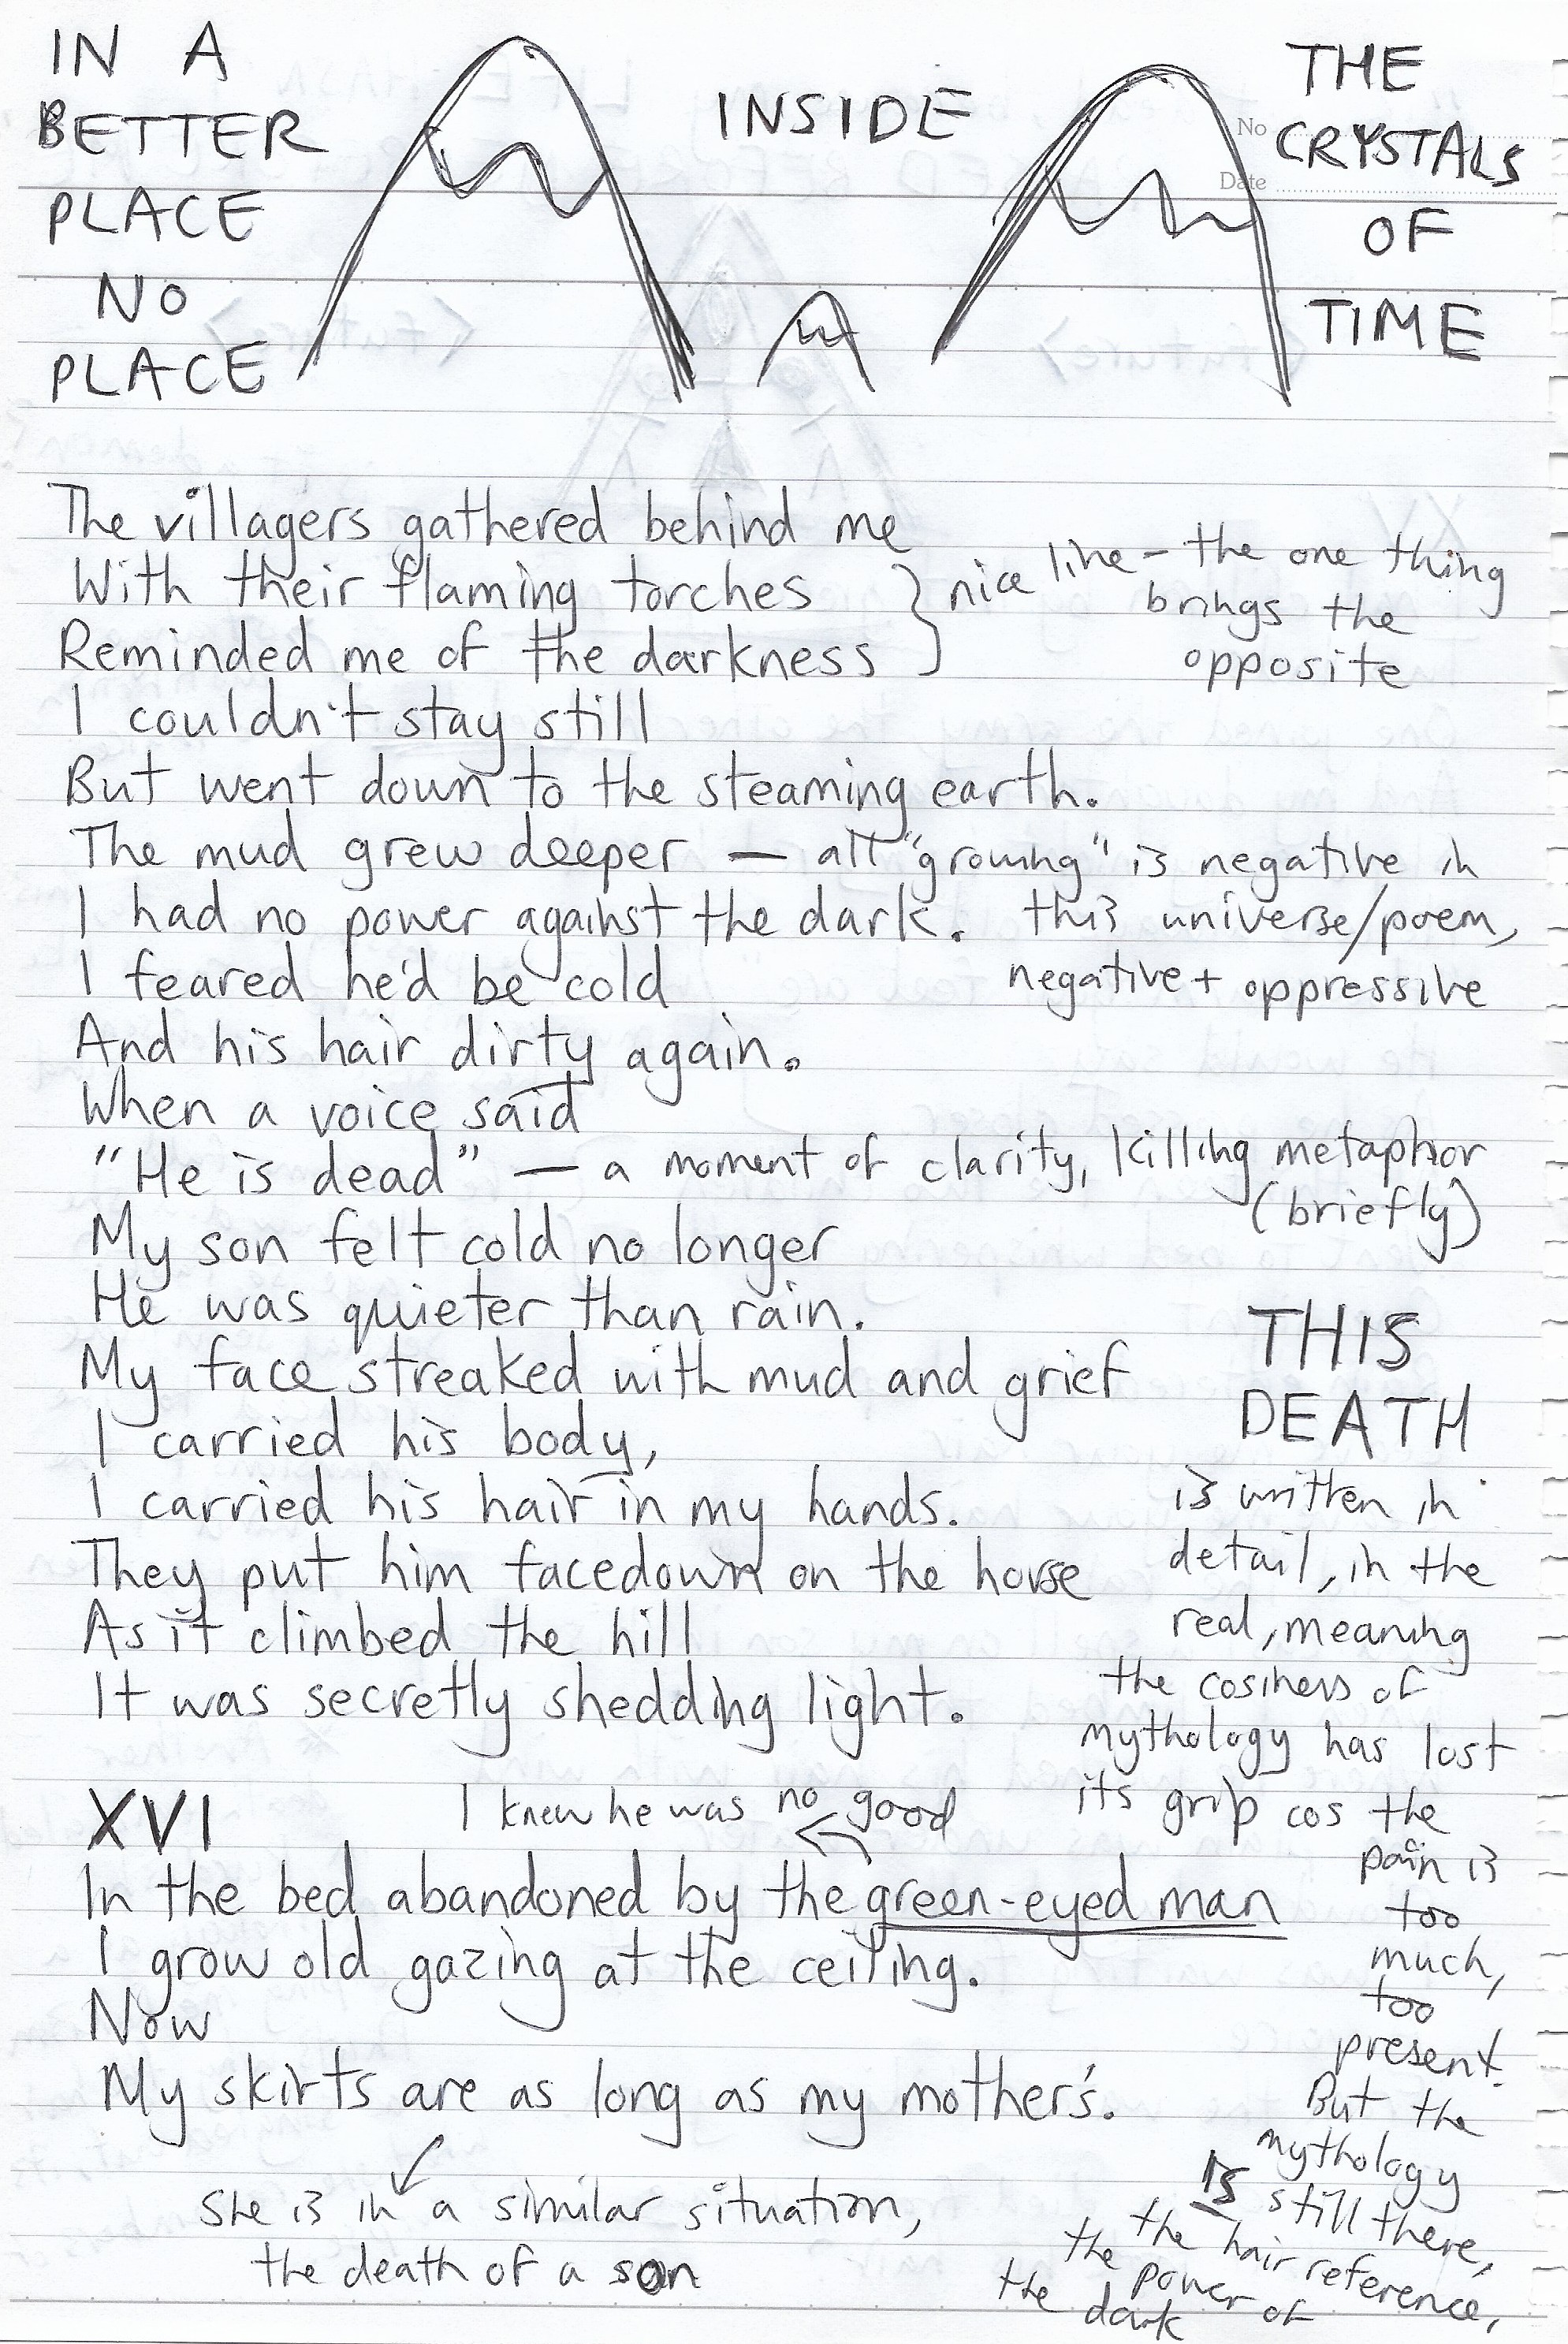 IN A
BETTER
PLACE
NO
PLACE
INSIDE
THE
CRYSTALS
OF
TIME
No
Date
The villagers gathered behind me
With their flaming torches
Reminded me of the darkness
} nice line – the one thing
brings the
opposite
I couldn't stay still
But went down to the steaming earth.
The mud grew deeper — all "growing" is negative in
I had no power against the dark. this universe/poem,
I feared he'd be cold
negative + oppressive
And his hair dirty again.
When a voice said
"He is dead" — a moment of clarity, killing metaphor
(briefly)
My son felt cold no longer
He was quieter than rain.
My face streaked with mud and grief
I carried his body,
I carried his hair in my hands.
They put him facedown on the horse
As it climbed the hill
It was secretly shedding light.
THIS
DEATH
is written in
detail, in the
real, meaning
the cosiness of
mythology has lost
its grip cos the
pain is
too
much,
too
present.
But the
mythology
IS still there,
the hair reference,
the power of
the dark
XVI
I knew he was no good
In the bed abandoned by the green-eyed man
I grow old gazing at the ceiling.
Now
My skirts are as long as my mother's.
She is in a similar situation,
the death of a son